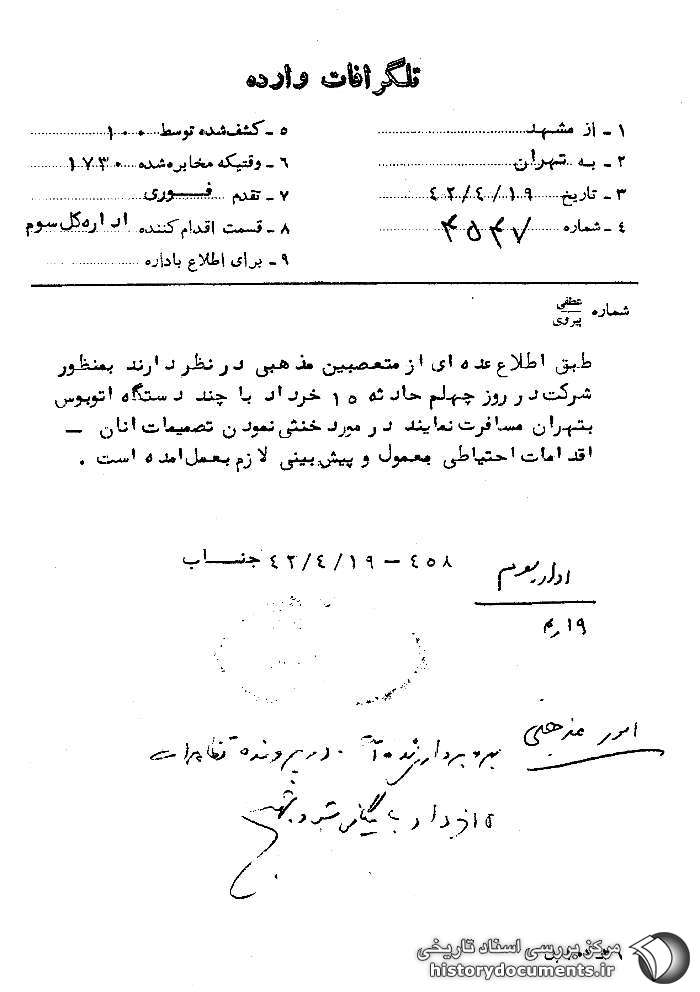 تلگرافات وارده
۱ - از مشهد
۲ - به تهران
۳ - تاریخ ۴۲/۴/۱۹
۴ - شماره ۴۵۴۷
۵ - کشف شده توسط ۱۰۰
۶ - وقتیکه مخابره شده ۱۷۳۰
۷ - تقدم فوری
۸ - قسمت اقدام کننده اداره کل سوم
۹ - برای اطلاع باداره
شماره عطفی پیروی
طبق اطلاع عده ای از متعصبین مذهبی در نظر دارند بمنظور
شرکت در روز چهلم حادثه ۱۵ خرداد با چند دستگاه اتوبوس
بتهران مسافرت نمایند در مورد خنثی نمودن تصمیمات انان –
اقدامات احتیاطی معمول و پیش بینی لازم بعمل امده است .
۴۵۸ – ۴۲/۴/۱۹ جناب
اداره سوم
۱۹/۴
امور مذهبی
بهره برداری شده در پرونده تظاهرات
۱۵ خرداد بایگانی شود
مرکز بررسی اسناد تاریخی
historydocuments.ir